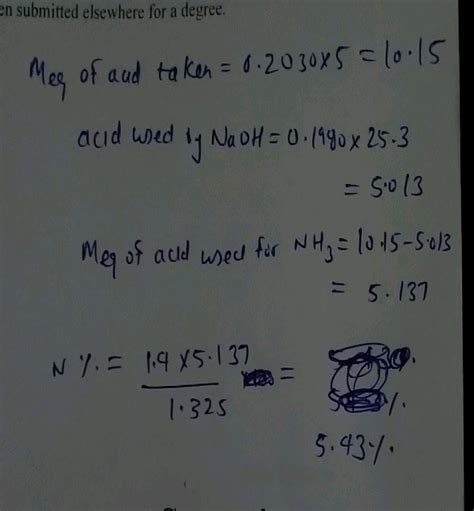 en submitted elsewhere for a degree.
Meq of acid taken = 0.2030×5 = 10.15
acid used by NaOH = 0.1980 × 25.3
= 5.013
Meq of acid used for NH3 = 10.15-5.013
= 5.137
N %. = 1.4 × 5.137 =
1.325
%.
5.43%.